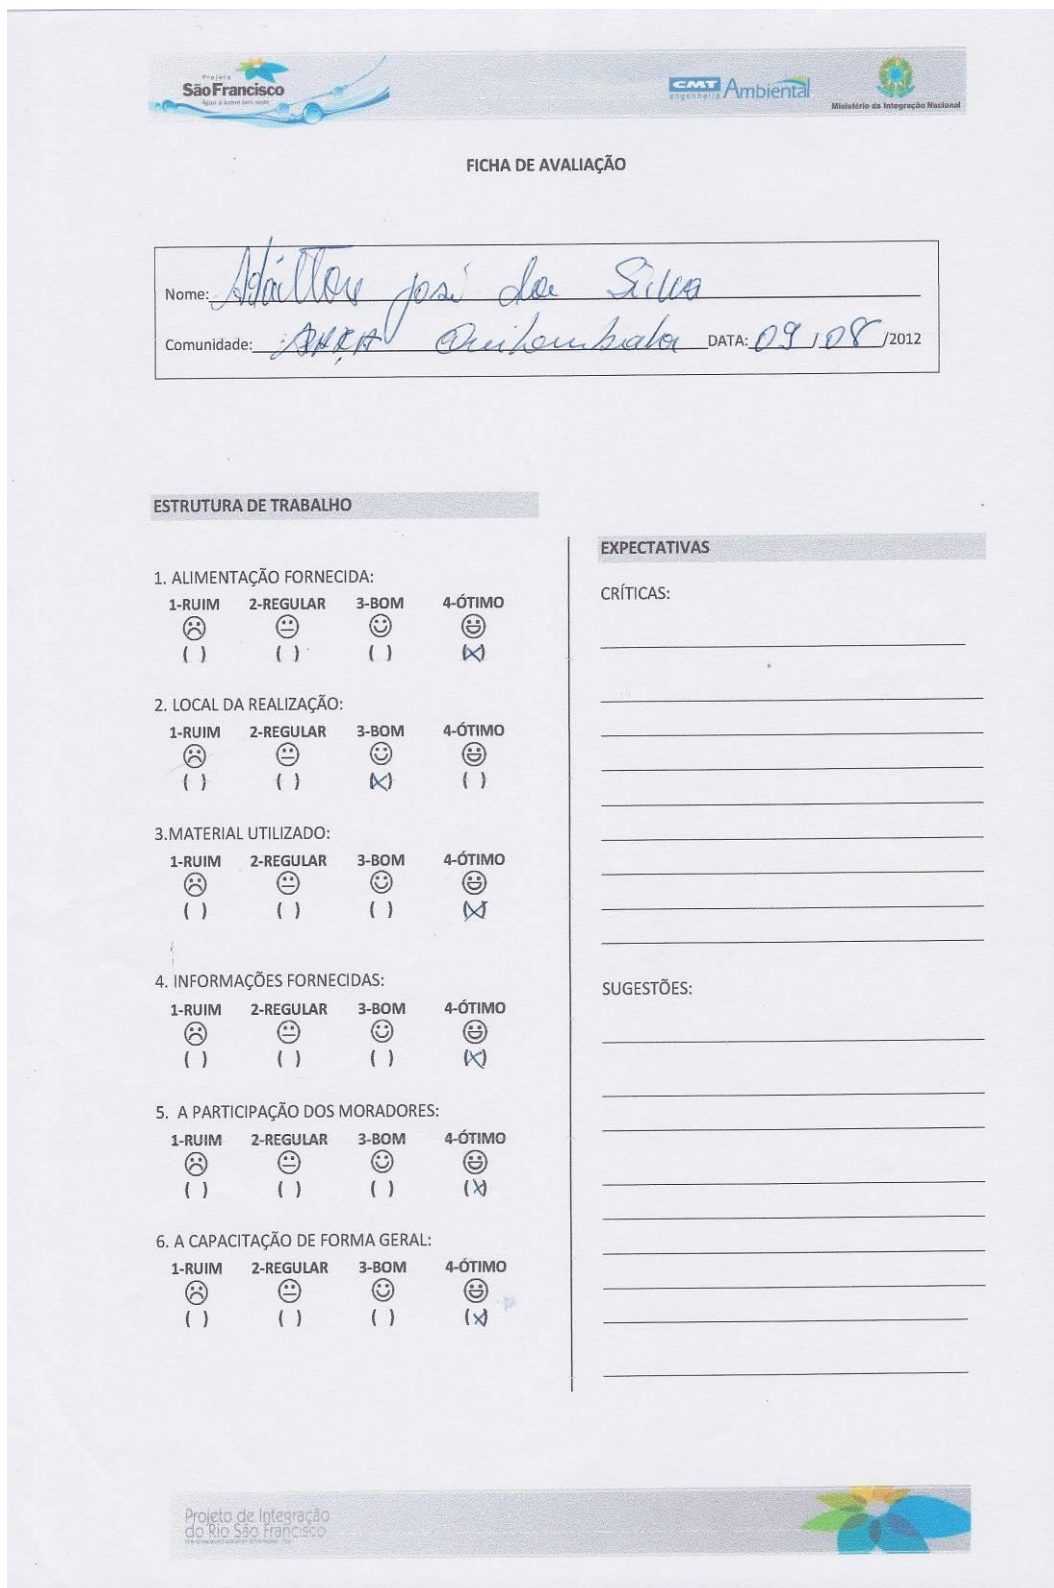 Projeto
São Francisco
Água a quem tem sede
CMT Ambiental
engenharia
Ministério da Integração Nacional
FICHA DE AVALIAÇÃO
Nome: José da Silva
Comunidade: Quilombola DATA: 09/08/2012
ESTRUTURA DE TRABALHO
1. ALIMENTAÇÃO FORNECIDA:
1-RUIM 2-REGULAR 3-BOM 4-ÓTIMO
( ) ( ) ( ) (X)
2. LOCAL DA REALIZAÇÃO:
1-RUIM 2-REGULAR 3-BOM 4-ÓTIMO
( ) ( ) (X) ( )
3.MATERIAL UTILIZADO:
1-RUIM 2-REGULAR 3-BOM 4-ÓTIMO
( ) ( ) ( ) (X)
4. INFORMAÇÕES FORNECIDAS:
1-RUIM 2-REGULAR 3-BOM 4-ÓTIMO
( ) ( ) ( ) (X)
5. A PARTICIPAÇÃO DOS MORADORES:
1-RUIM 2-REGULAR 3-BOM 4-ÓTIMO
( ) ( ) ( ) (X)
6. A CAPACITAÇÃO DE FORMA GERAL:
1-RUIM 2-REGULAR 3-BOM 4-ÓTIMO
( ) ( ) ( ) (X)
EXPECTATIVAS
CRÍTICAS:
SUGESTÕES:
Projeto de Integração
do Rio São Francisco